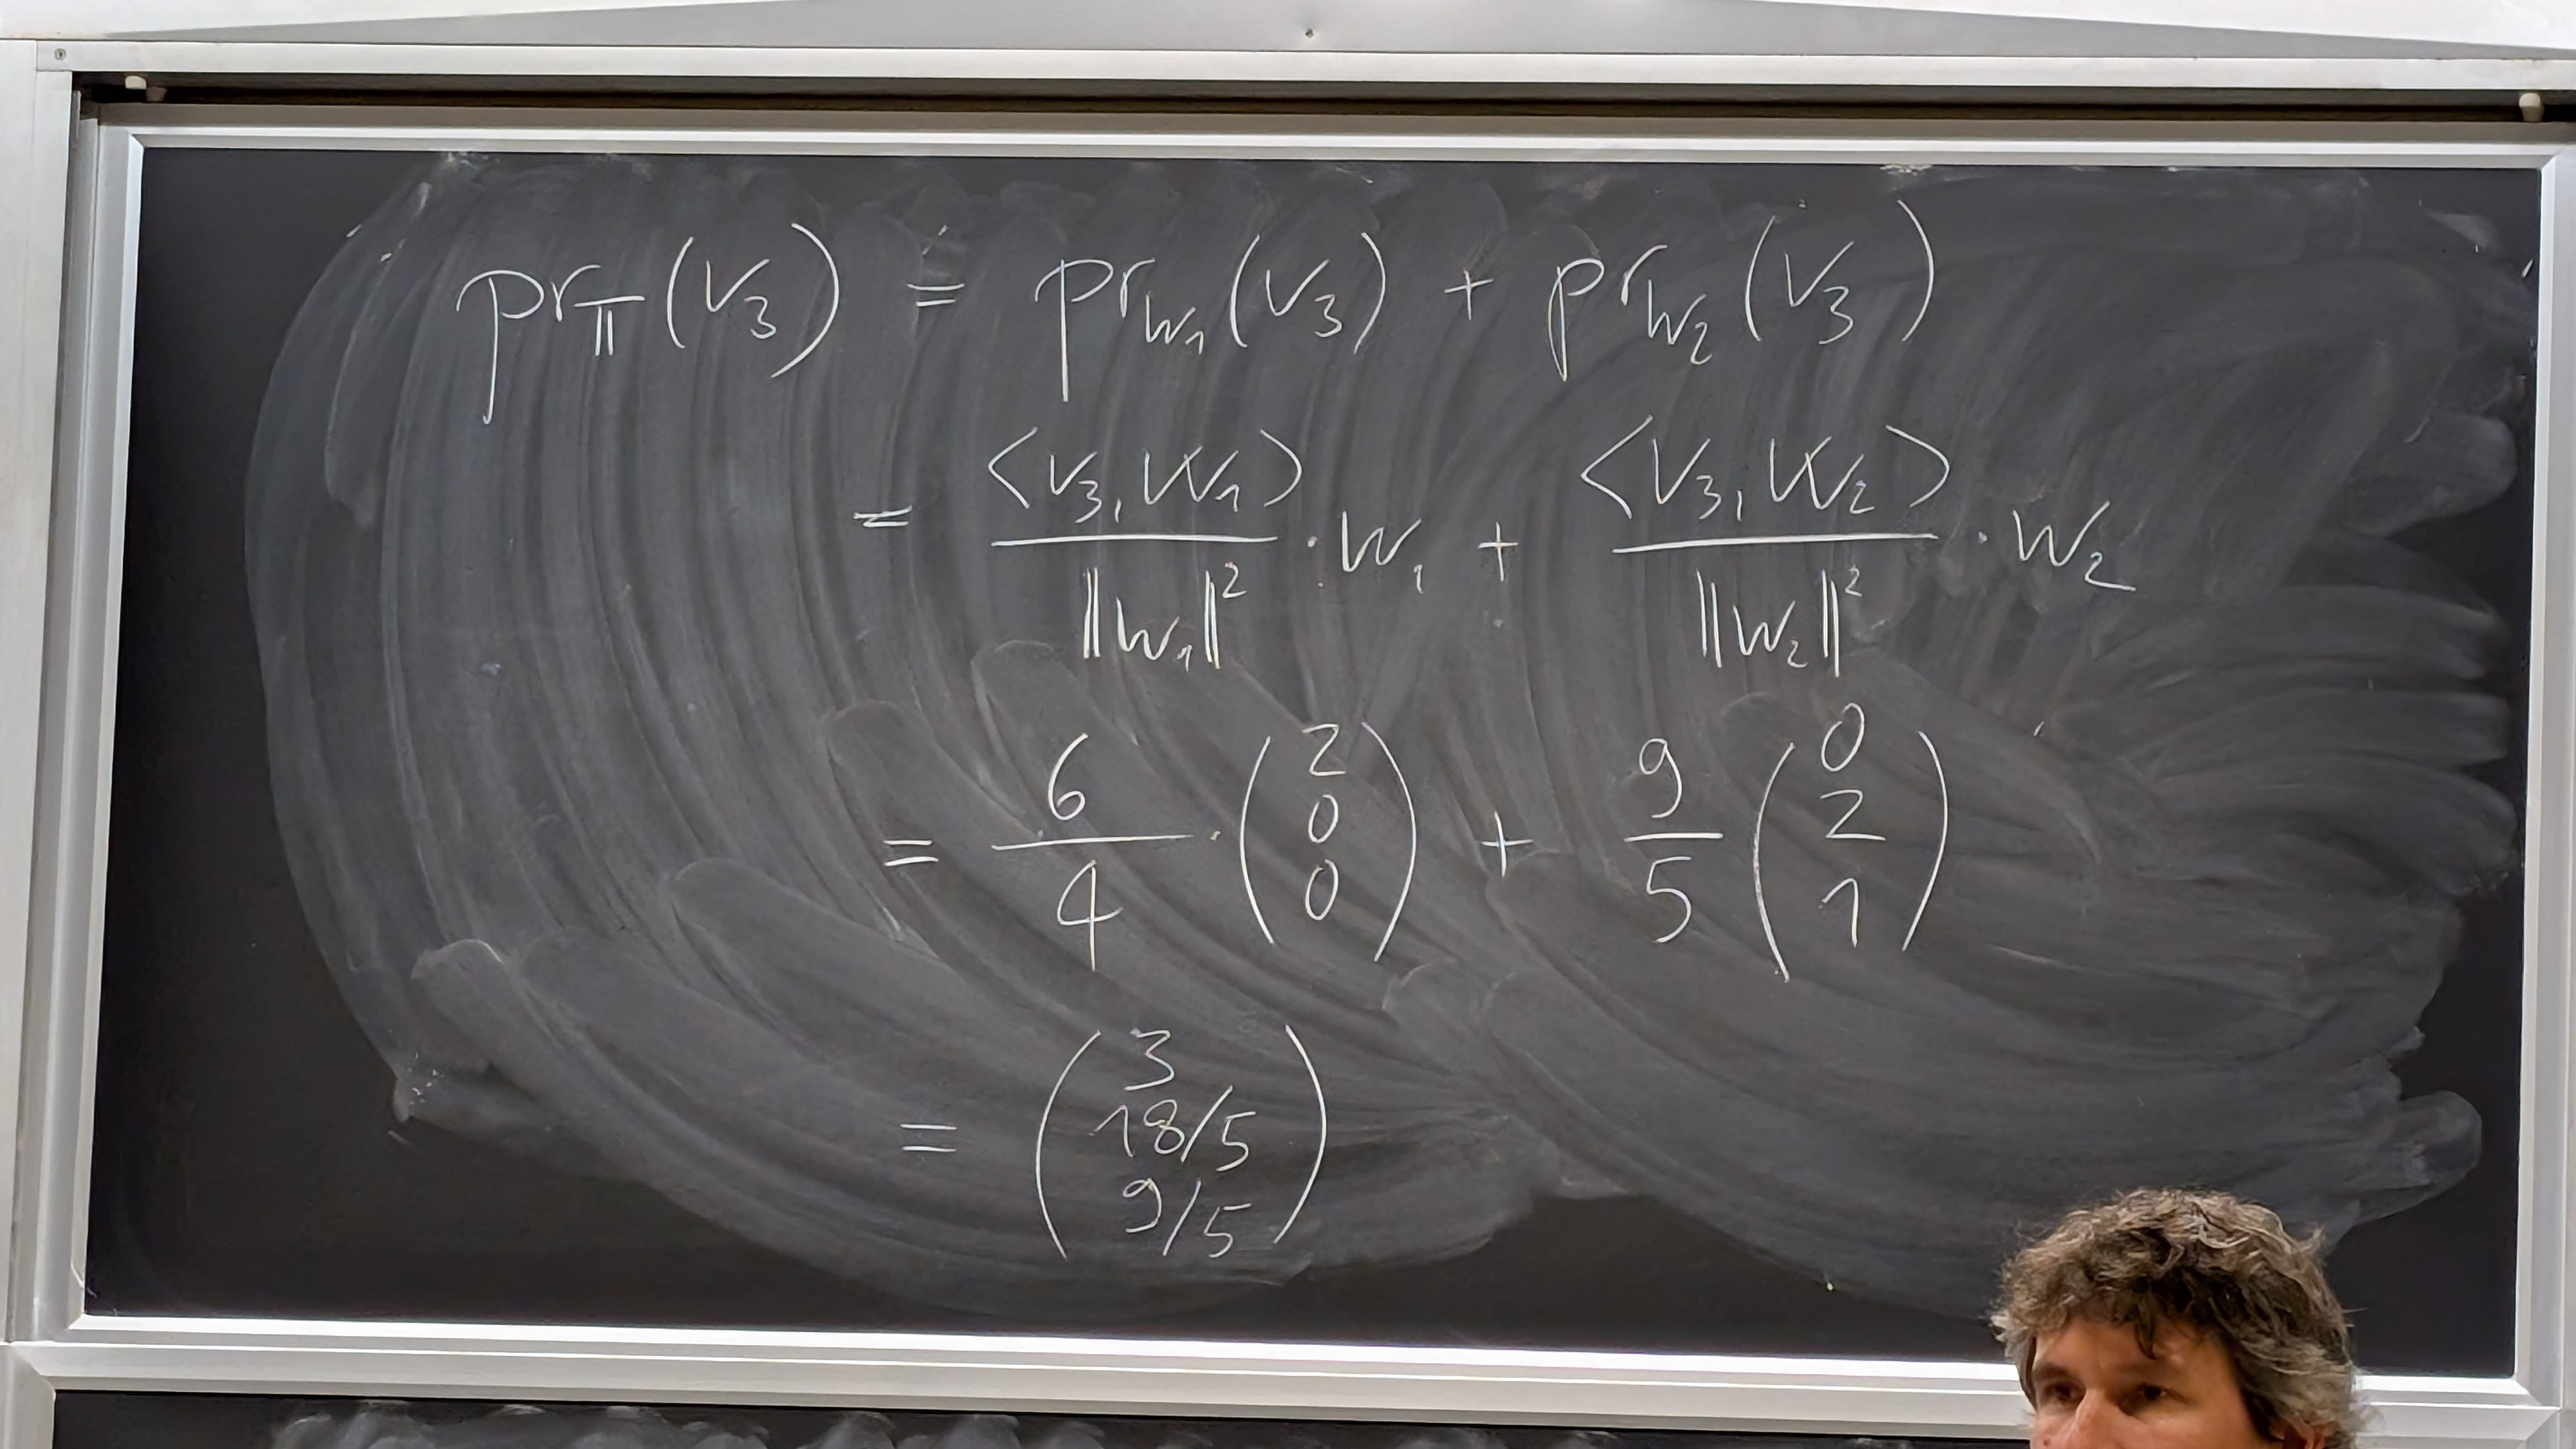 pr_π(v₃) = pr_w₁(v₃) + pr_w₂(v₃)
= <v₃, w₁> / ‖w₁‖² · w₁ + <v₃, w₂> / ‖w₂‖² · w₂
= 6/4 · (2 0 0) + 9/5 (0 2 1)
= (3 18/5 9/5)